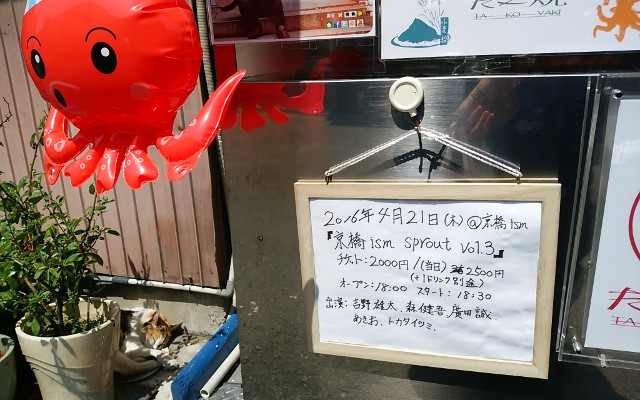 たこ焼
TAKOYAKI
2016年4月21日(木)@京橋ism
『京橋ism sprout Vol.3』
チケット:2000円/(当日)2500円
(+1ドリンク別途)
オープン:18:00 スタート:18:30
出演:吉野雄大、森健吾、廣田誠
あきお、トカタイツミ、